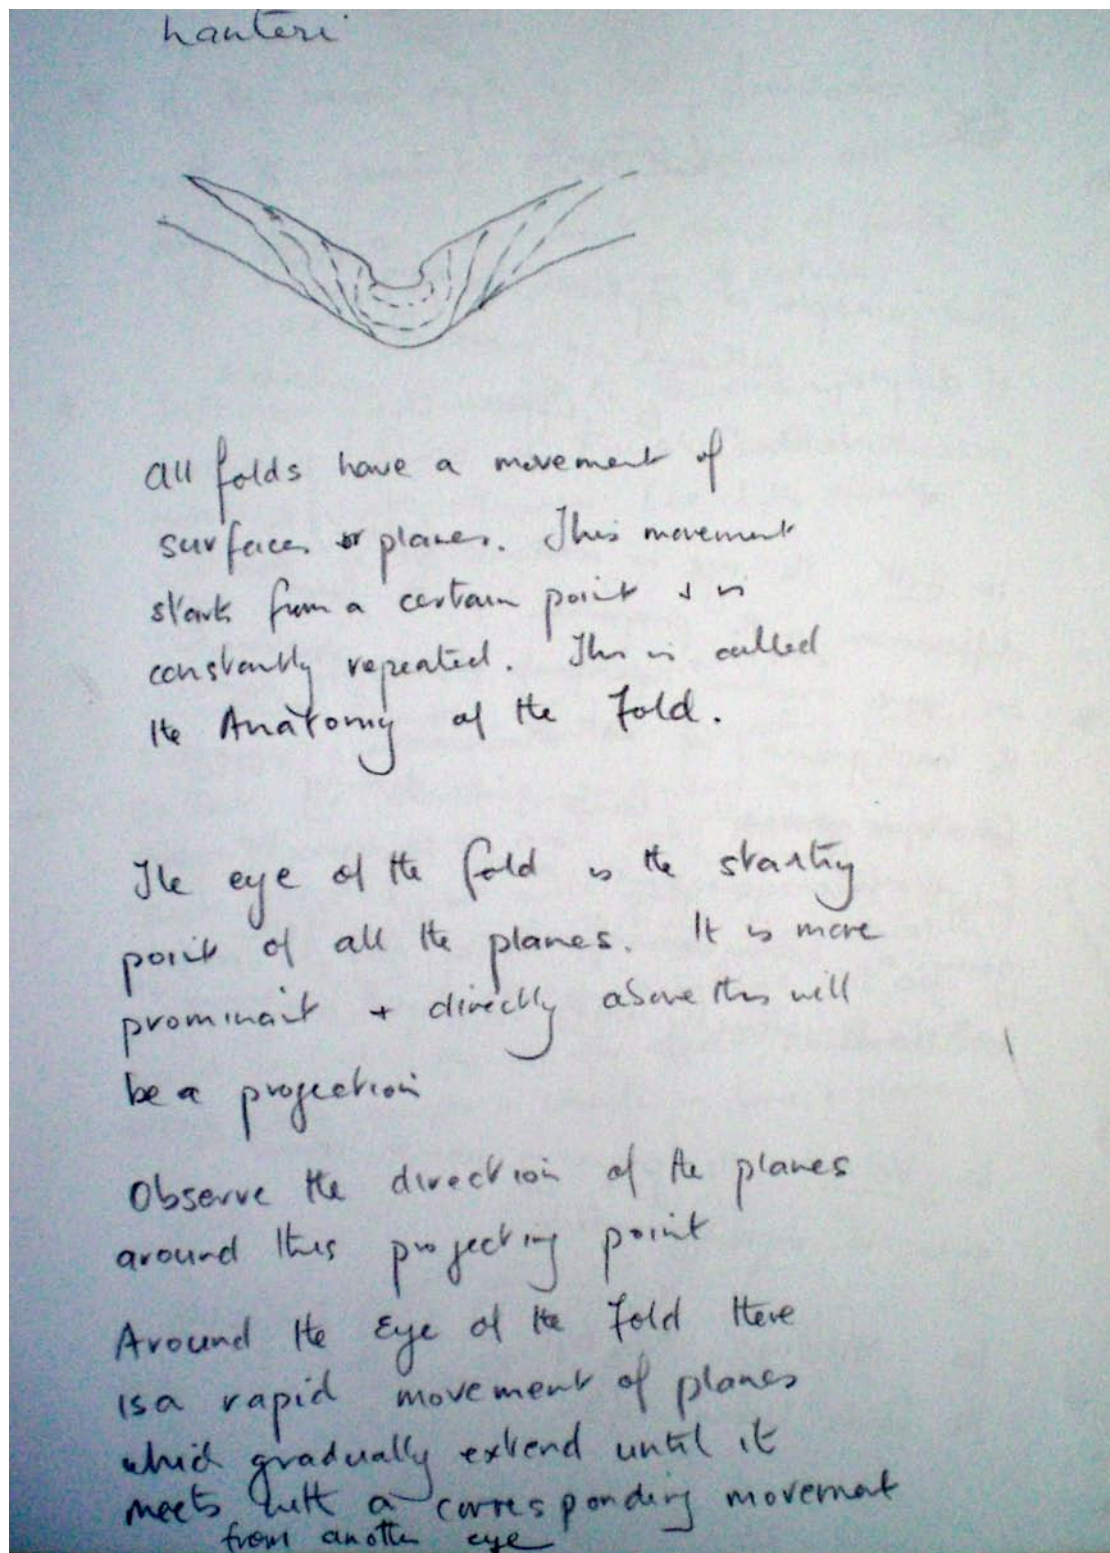 Lanteri
All folds have a movement of
surfaces or planes. This movement
starts from a certain point & is
constantly repeated. This is called
the Anatomy of the Fold.
The eye of the fold is the starting
point of all the planes. It is more
prominant + directly above this will
be a projection
Observe the direction of the planes
around this projecting point
Around the Eye of the Fold there
is a rapid movement of planes
which gradually extend until it
meets with a corresponding movement
from another eye